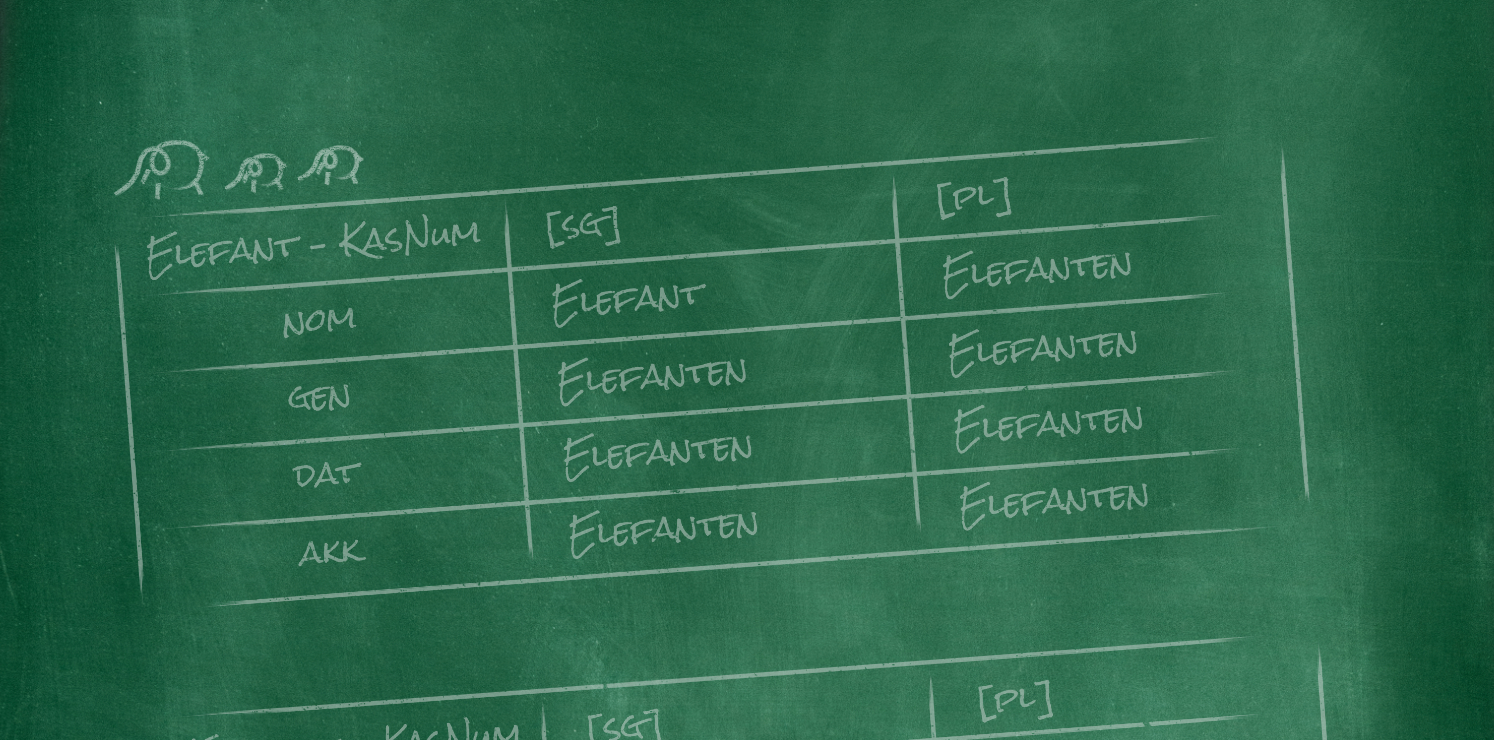 Elefant - KasNum [SG] [PL]
NOM Elefant Elefanten
GEN Elefanten Elefanten
DAT Elefanten Elefanten
AKK Elefanten Elefanten
KasNum [SG] [PL]